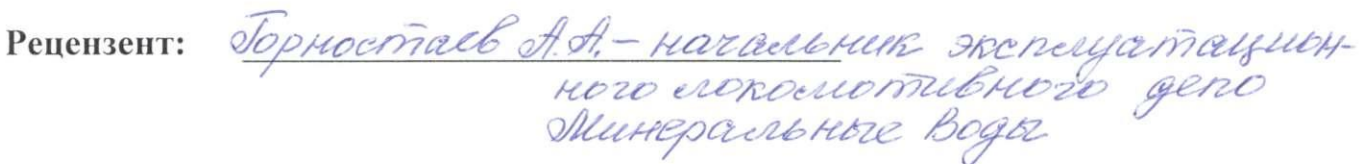 Рецензент: Горностаев А.А. – начальник эксплуатацион-
ного локомотивного депо
Минеральные Воды